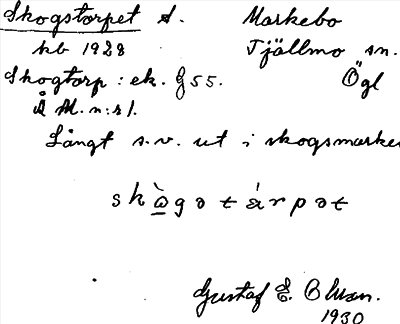 Skogstorpet S. Markebo
kb 1928 Tjällmo sn.
Skogtorp: ek. G 55. Ögl
Å M. n:s 1.
Långt s.v. ut i skogsmarken
skògotárpət
Gustaf E. Olsson.
1930